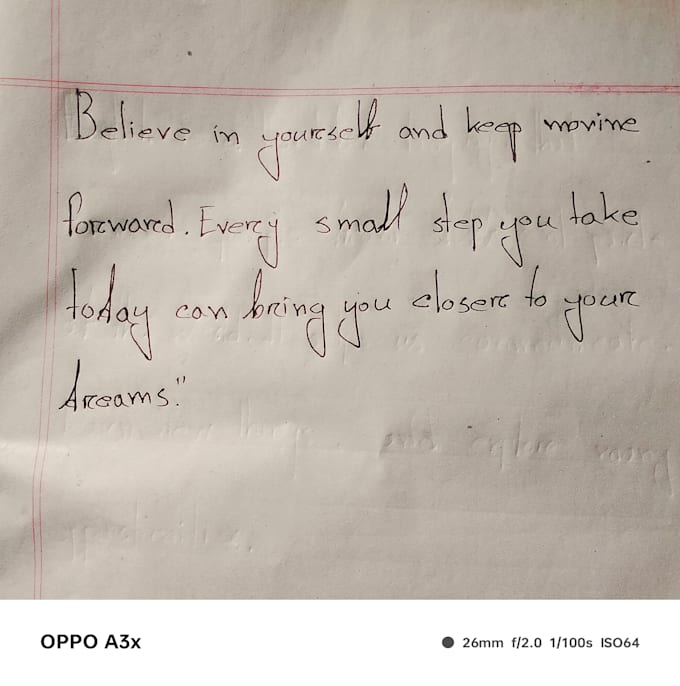 Believe in yourself and keep movine
forward. Every small step you take
today can bring you closer to your
dreams."
OPPO A3x
26mm f/2.0 1/100s ISO64